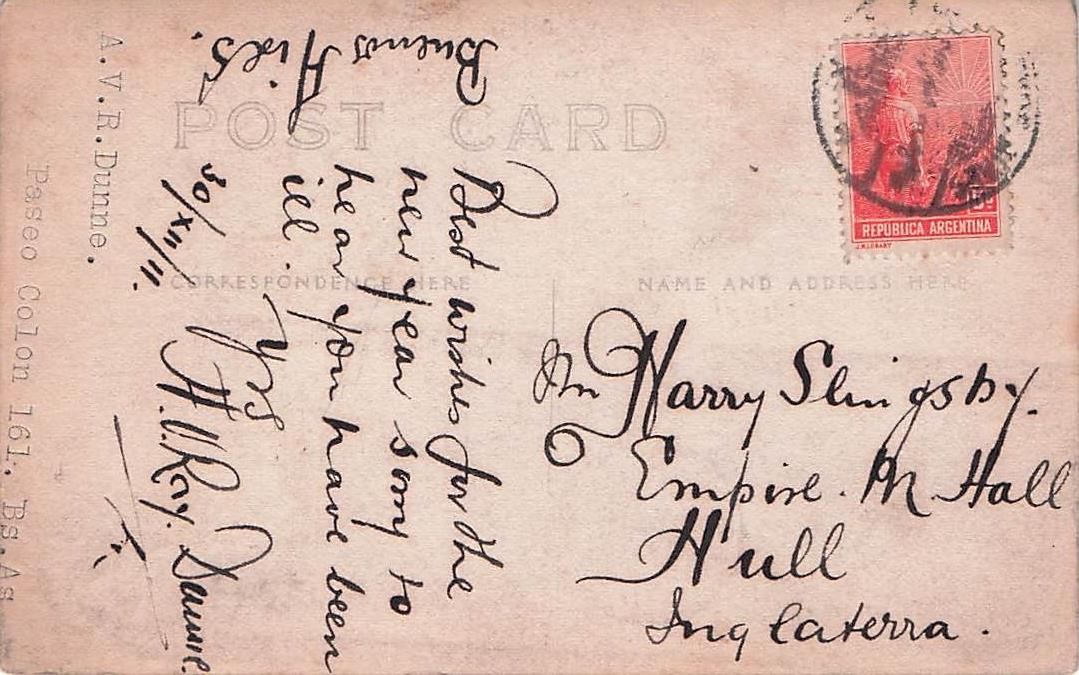 POST CARD
CORRESPONDENCE HERE
NAME AND ADDRESS HERE
REPUBLICA ARGENTINA
Buenos Aires.
Best wishes for the
new year sorry to
hear you have been
ill.
Yrs
A.V.Roy. Dunne.
30/XII/11.
A.V.R.Dunne.
Paseo Colon 161. Bs.As
Harry Slingsby.
Empire. M. Hall
Hull
Inglaterra.